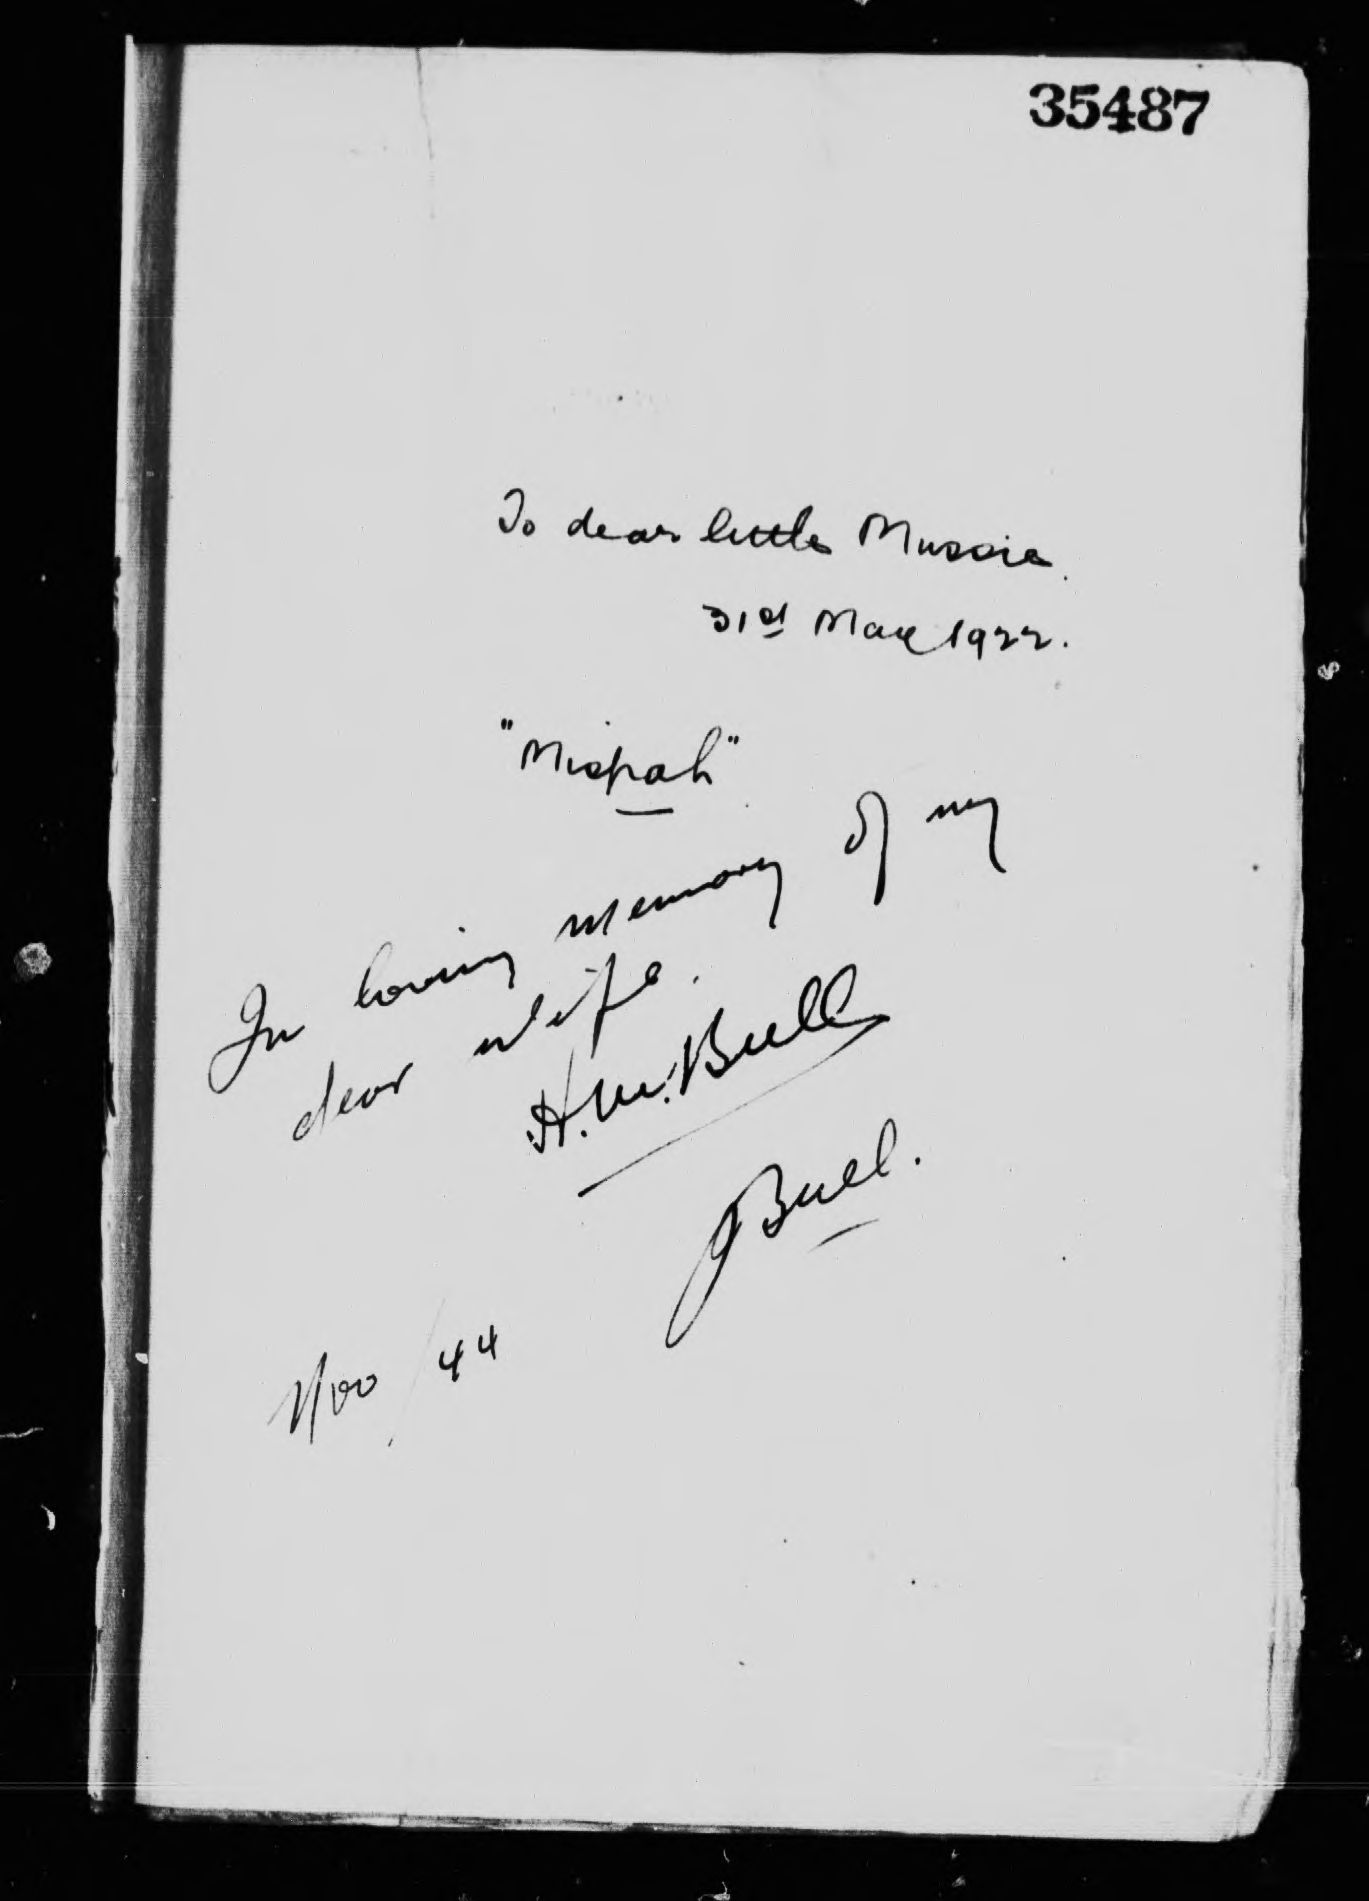 35487
To dear little Mussie.
31st May 1922.
"Mispah"
In loving memory of my
dear wife.
H.W. Bull
JBull.
Nov/44